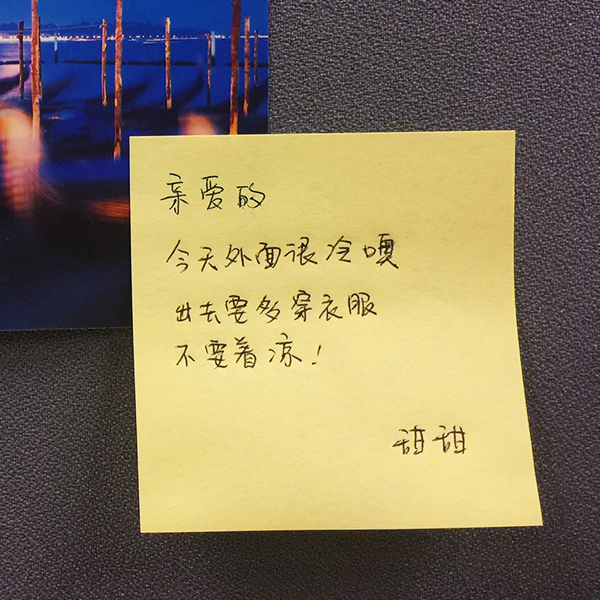 亲爱的
今天外面很冷嘎
出去要多穿衣服
不要着凉！
甜甜